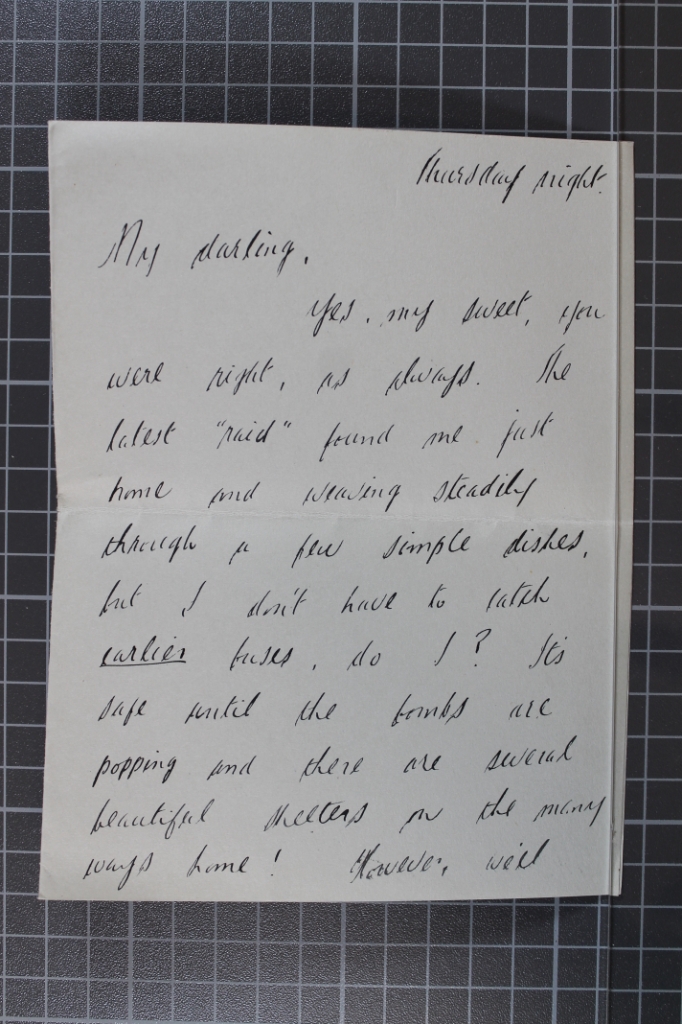 Thursday night.
My darling,
Yes, my sweet, you
were right, as always. The
latest "raid" found me just
home and weaving steadily
through a few simple dishes,
but I don't have to catch
earlier buses, do I? It's
safe until the bombs are
popping and there are several
beautiful shelters on the many
ways home! However, we'll